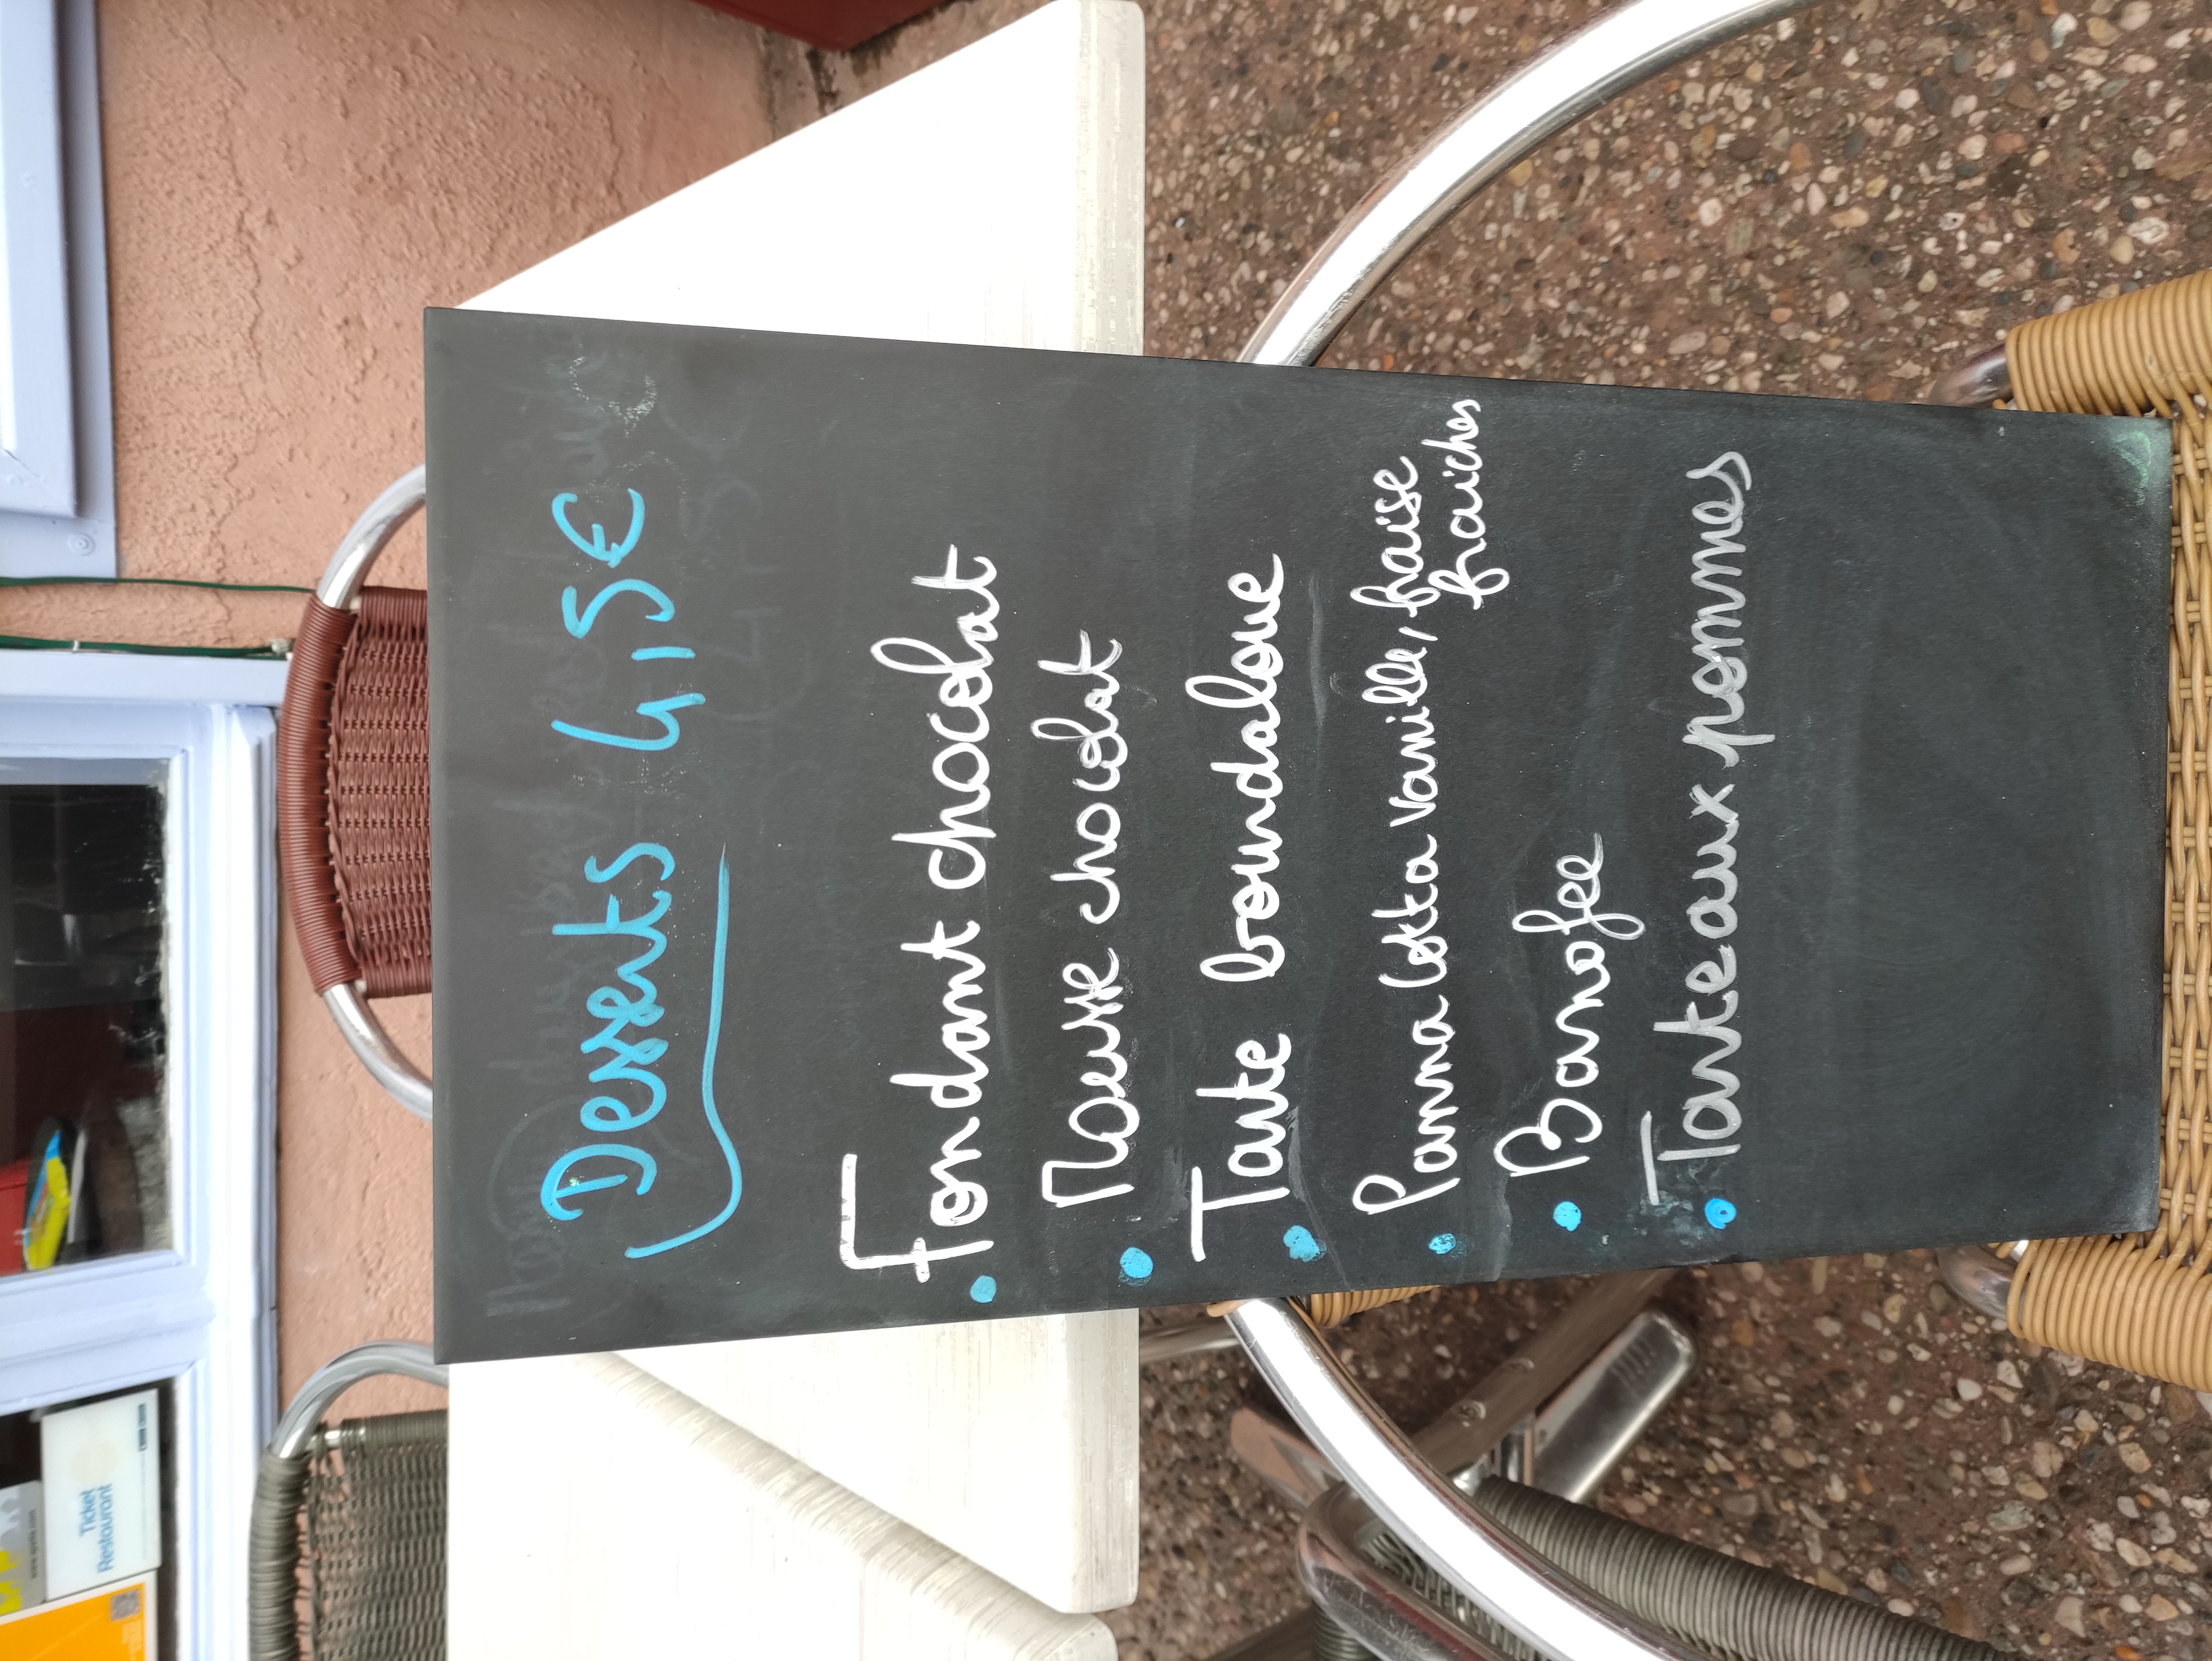 Desserts 4,5€
Fondant chocolat
Mousse chocolat
Tarte bourdaloue
Panna Cotta vanille, fraise
fraiches
Banofee
Tarteaux pommes
Ticket
Restaurant